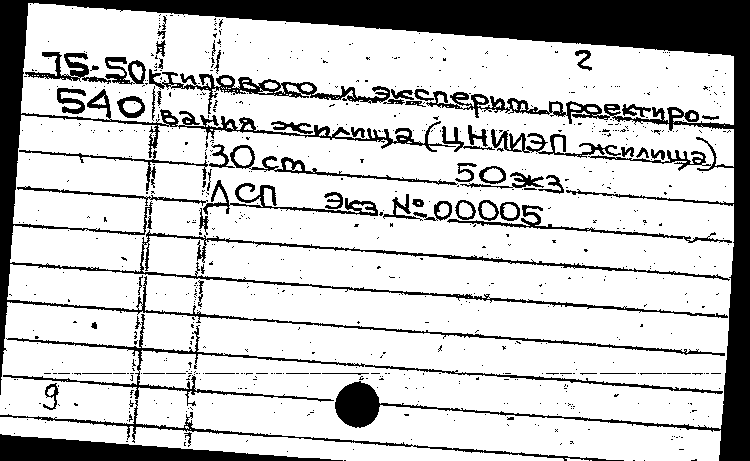 2
75-50к типового и эксперим. проектиро-
540 вания жилища (ЦНИИЭП жилища)
30 ст. 50 экз.
ДСП Экз. № 00005.
9